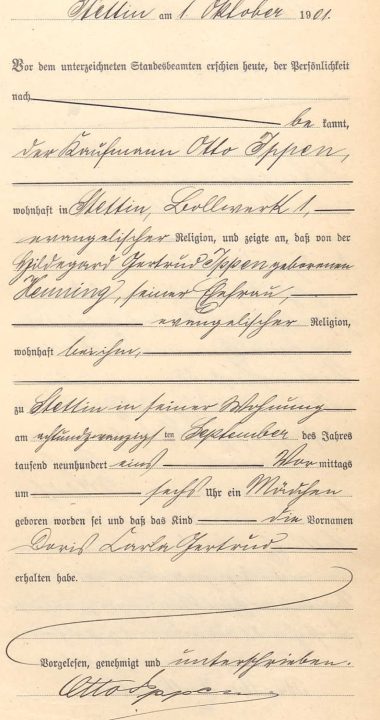 Stettin am 1 Oktober 1901.
Vor dem unterzeichneten Standesbeamten erschien heute, der Persönlichkeit
nach
be kannt,
der Kaufmann Otto Ippen,
wohnhaft in Stettin, Bollwerk 1,
evangelischer Religion, und zeigte an, daß von der
Hildegard Gertrud Ippen geborenen
Henning, seiner Ehefrau,
evangelischer Religion,
wohnhaft bei ihm,
zu Stettin in seiner Wohnung
am achtundzwanzigsten September des Jahres
tausend neunhundert eins Vor mittags
um sechs Uhr ein Mädchen
geboren worden sei und daß das Kind die Vornamen
Doris Carla Gertrud
erhalten habe.
Vorgelesen, genehmigt und unterschrieben.
Otto Ippen